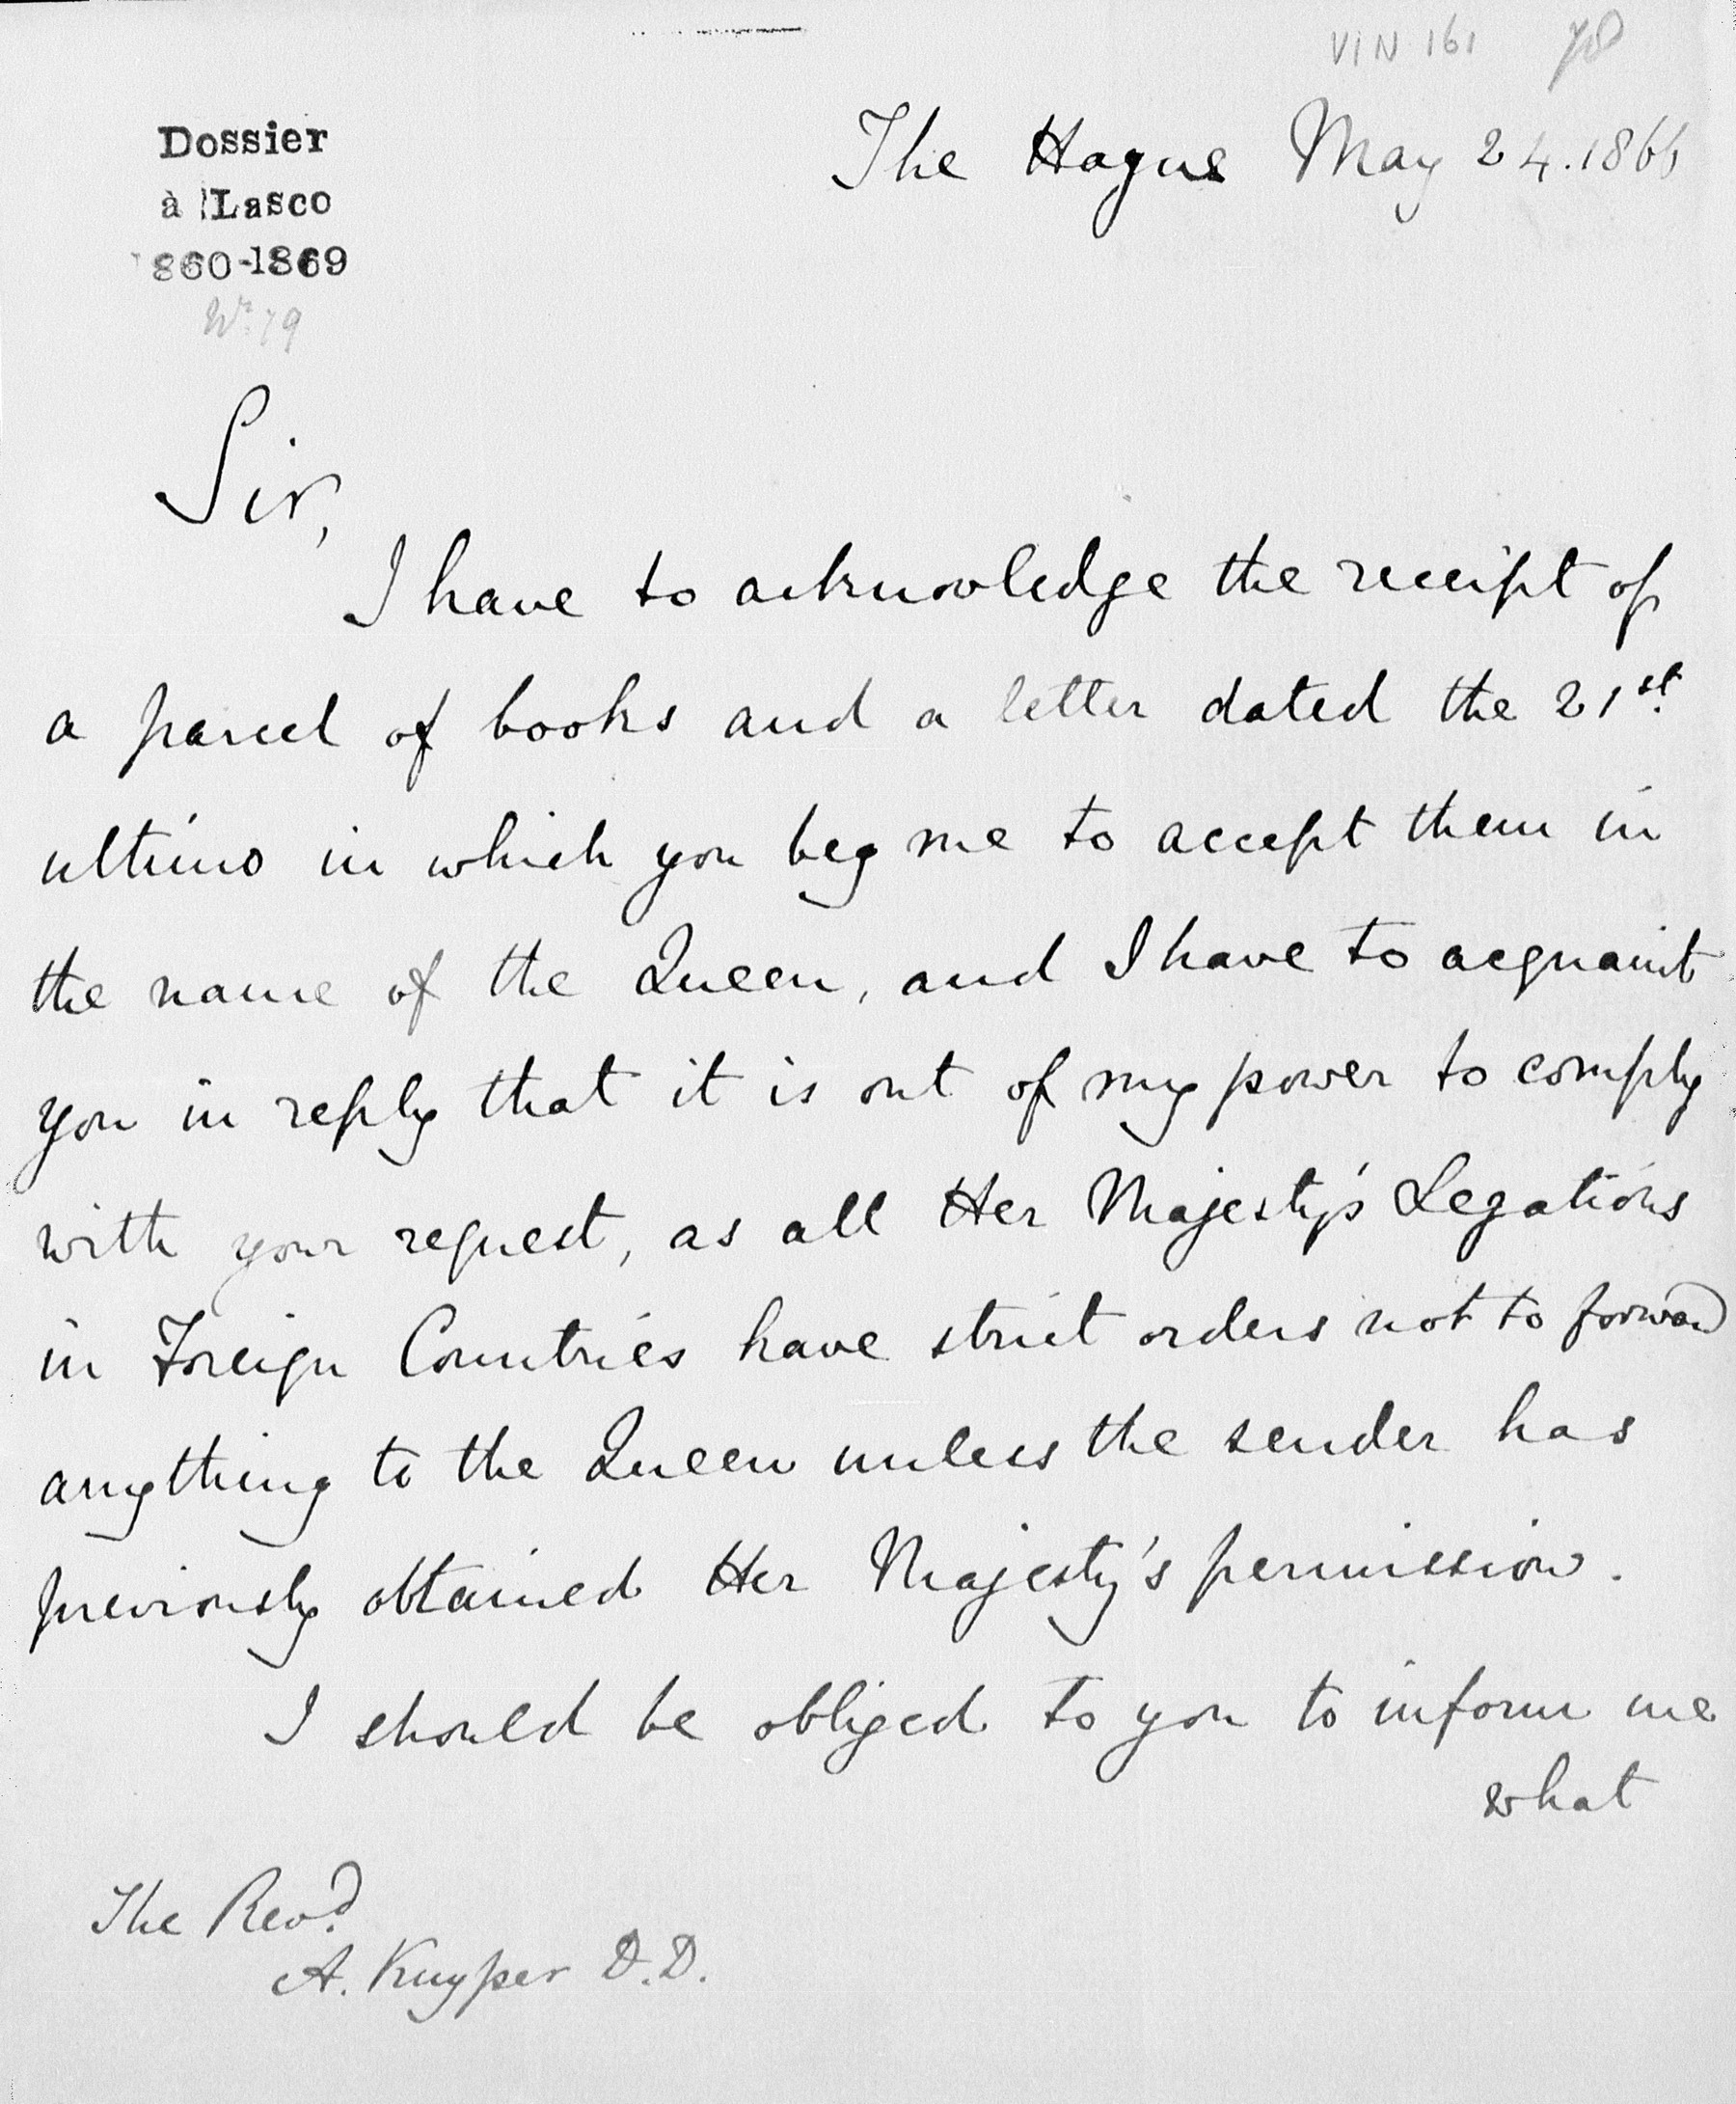 VIN 161
Dossier
à Lasco
1860-1869
Nr. 79
The Hague May 24. 1866
Sir,
I have to acknowledge the receipt of
a parcel of books and a letter dated the 21st.
ultimo in which you beg me to accept them in
the name of the Queen, and I have to acquaint
you in reply that it is out of my power to comply
with your request, as all Her Majesty's Legations
in Foreign Countries have strict orders not to forward
anything to the Queen unless the sender has
previously obtained Her Majesty's permission.
I should be obliged to you to inform me
what
The Revd.
A. Kuyper D.D.